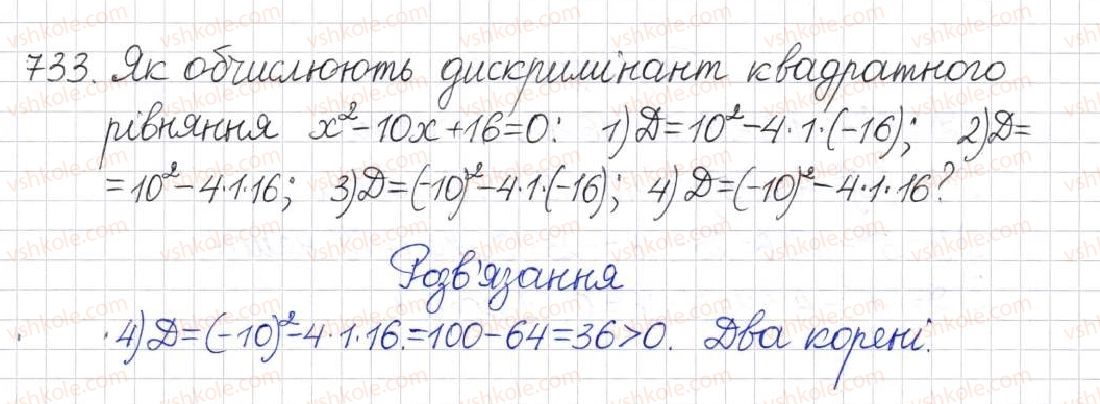 733. Як обчислюють дискримінант квадратного
рівняння x²-10x+16=0: 1) D=10²-4·1·(-16); 2) D=
=10²-4·1·16; 3) D=(-10)²-4·1·(-16); 4) D=(-10)²-4·1·16?
Розв'язання
4) D=(-10)²-4·1·16.=100-64=36>0. Два корені.